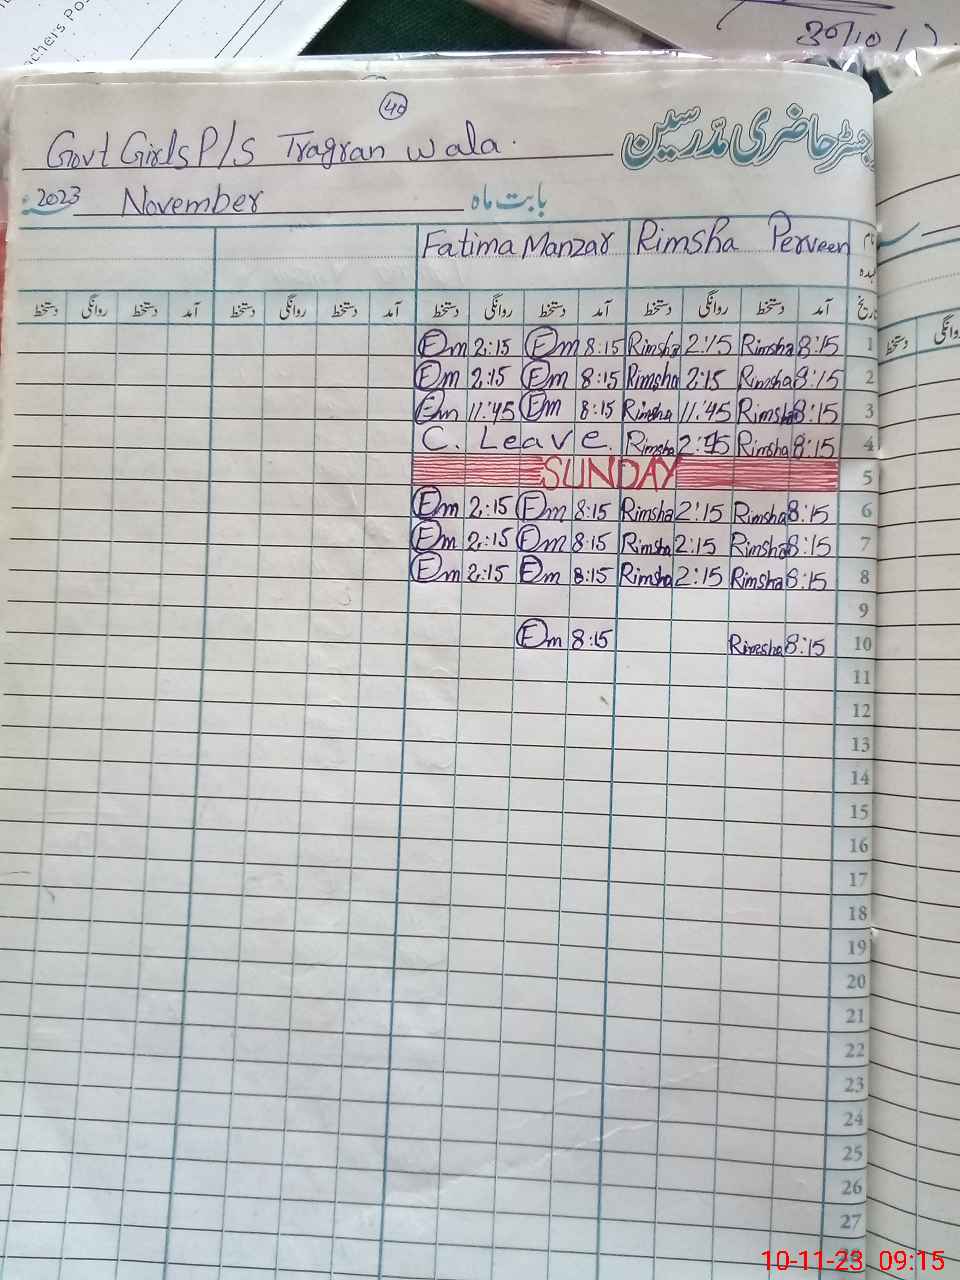 acher's Pos
30/10/
40
Govt Girls P/S Tragran wala.
رجسٹر حاضری مدرسین
2023 November بابت ماہ
Fatima Manzar Rimsha Perveen نام
عہدہ
دستخط روانگی دستخط آمد دستخط روانگی دستخط آمد دستخط روانگی دستخط آمد دستخط روانگی دستخط آمد تاریخ
روانگی دستخط
Fm 2:15 Fm 8:15 Rimsha 2:15 Rimsha 8:15 1
Fm 2:15 Fm 8:15 Rimsha 2:15 Rimsha 8:15 2
Fm 11:45 Fm 8:15 Rimsha 11:45 Rimsha 8:15 3
C. Leave. Rimsha 2:15 Rimsha 8:15 4
SUNDAY 5
Fm 2:15 Fm 8:15 Rimsha 2:15 Rimsha 8:15 6
Fm 2:15 Fm 8:15 Rimsha 2:15 Rimsha 8:15 7
Fm 2:15 Fm 8:15 Rimsha 2:15 Rimsha 8:15 8
9
Fm 8:15 Rimsha 8:15 10
11
12
13
14
15
16
17
18
19
20
21
22
23
24
25
26
27
28
10-11-23 09:15